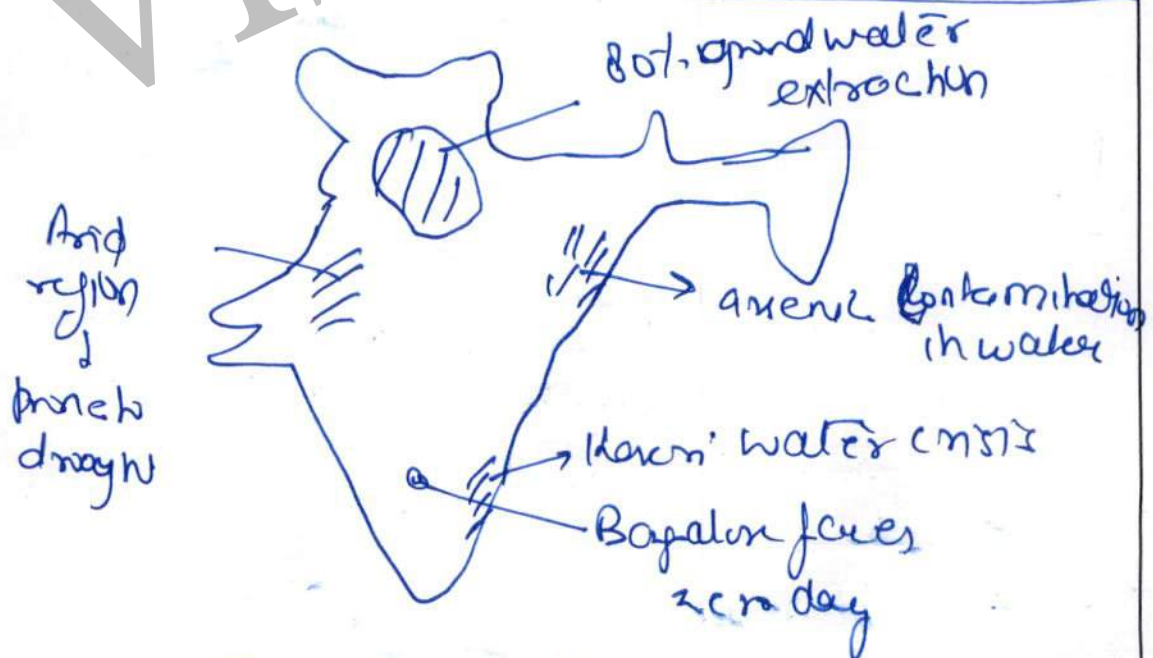 80% groundwater
extraction
Arid
region
↓
prone to
drought
arsenic Contamination
in water
Kaveri water crisis
Bangalore faces
zero day